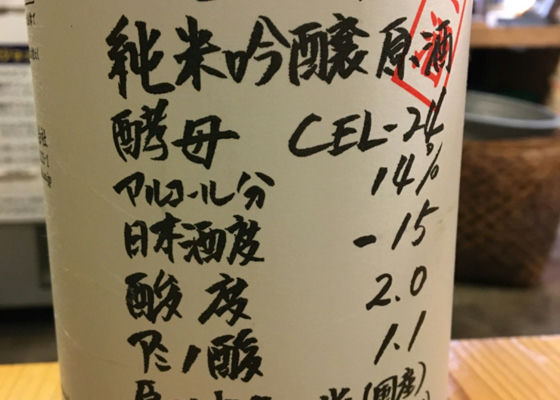 純米吟醸原酒
酵母 CEL-24
アルコール分 14%
日本酒度 -15
酸度 2.0
アミノ酸 1.1
米(国産)